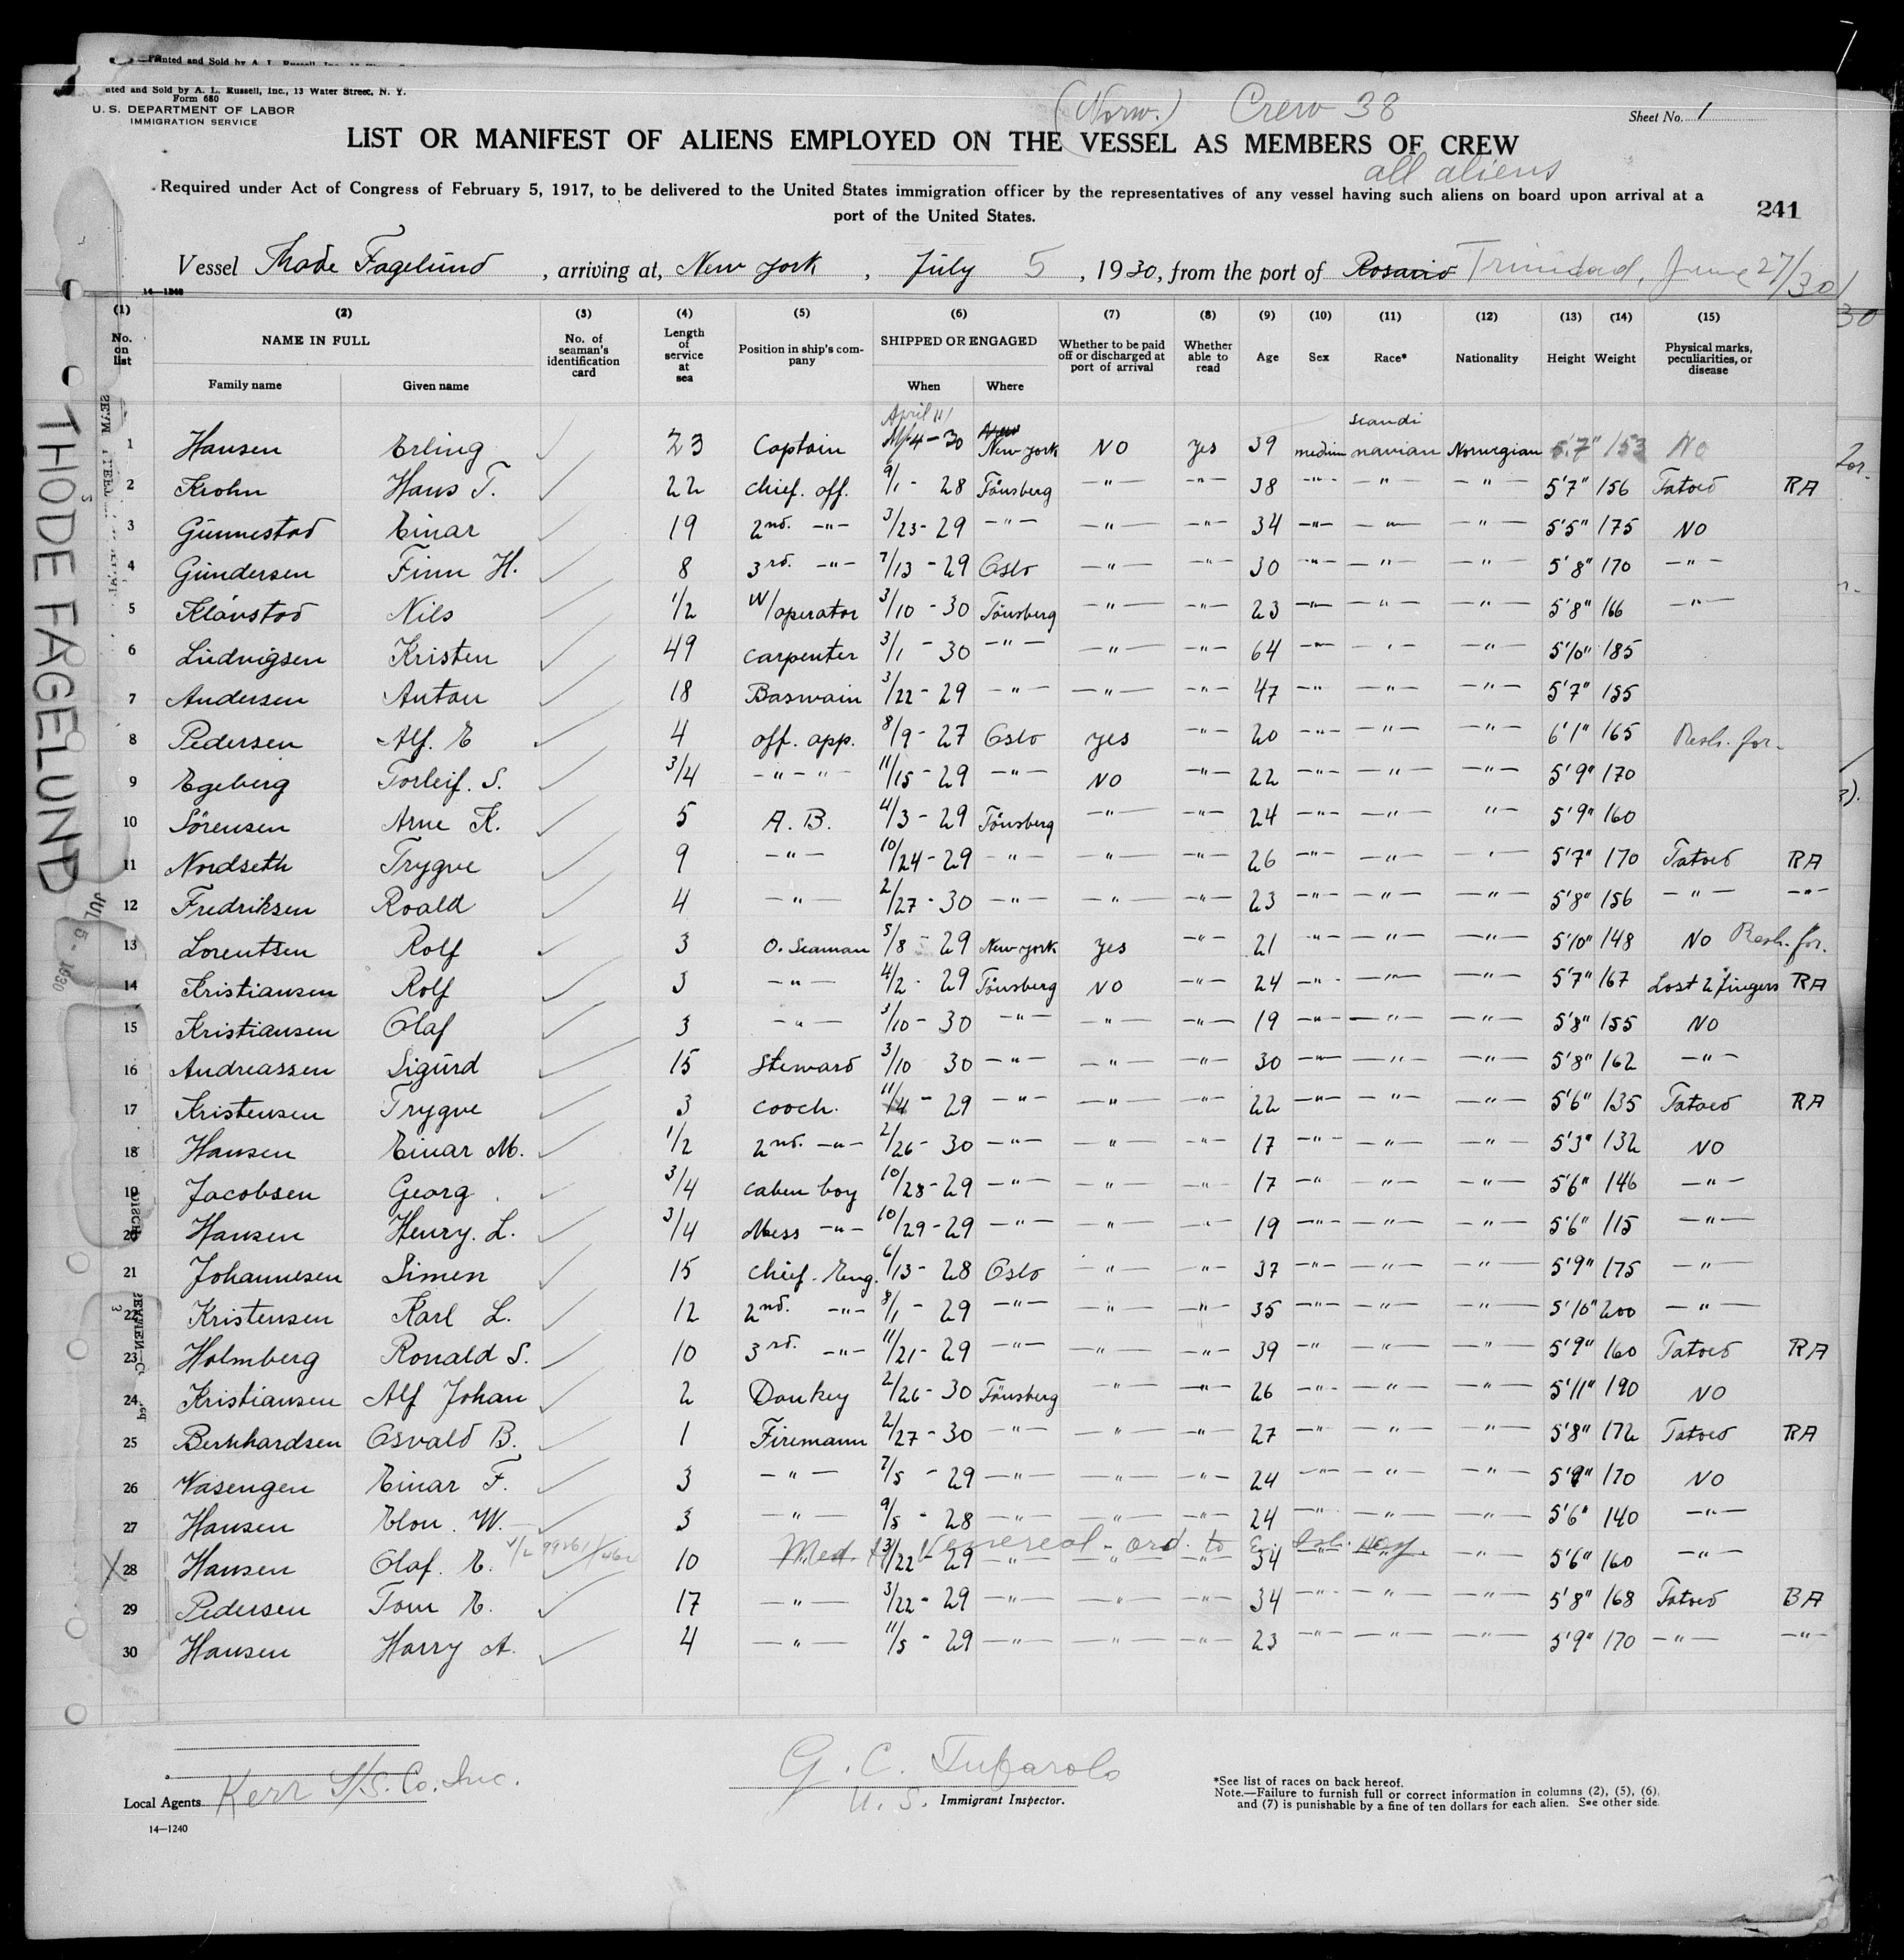 Printed and Sold by A. L. Russell, Inc.
nted and Sold by A. L. Russell, Inc., 13 Water Street, N. Y.
Form 680
U. S. DEPARTMENT OF LABOR
IMMIGRATION SERVICE
(Norw.) Crew 38
Sheet No. 1
LIST OR MANIFEST OF ALIENS EMPLOYED ON THE VESSEL AS MEMBERS OF CREW
all aliens
Required under Act of Congress of February 5, 1917, to be delivered to the United States immigration officer by the representatives of any vessel having such aliens on board upon arrival at a
port of the United States.
241
Vessel Thode Fagelund, arriving at, New York, July 5, 1930, from the port of Rosario Trinidad, June 27/30
14—1240
(1) (2) (3) (4) (5) (6) (7) (8) (9) (10) (11) (12) (13) (14) (15)
No. on list NAME IN FULL Family name Given name No. of seaman's identification card Length of service at sea Position in ship's company SHIPPED OR ENGAGED When Where Whether to be paid off or discharged at port of arrival Whether able to read Age Sex Race* Nationality Height Weight Physical marks, peculiarities, or disease
April 11/ Scandi
1 Hansen Erling 23 Captain 4-30 New York NO Yes 39 medium navian Norwegian 5'7" 153 No
2 Krohn Hans T. 22 chief. off. 9/1 - 28 Tönsberg —"— —"— 38 —"— —"— —"— 5'7" 156 Tatoed RA
3 Gunnestad Einar 19 2nd. —"— 3/23 - 29 —"— —"— —"— 34 —"— —"— —"— 5'5" 175 NO
4 Gundersen Finn H. 8 3rd. —"— 7/13 - 29 Oslo —"— —"— 30 —"— —"— —"— 5'8" 170 —"—
5 Klåvstad Nils 1/2 W/operator 3/10 - 30 Tönsberg —"— —"— 23 —"— —"— —"— 5'8" 166 —"—
6 Ludvigsen Kristen 49 carpenter 3/1 - 30 —"— —"— —"— 64 —"— —"— —"— 5'10" 185
7 Andersen Anton 18 Baswain 3/22 - 29 —"— —"— —"— 47 —"— —"— —"— 5'7" 155
8 Pedersen Alf. E 4 off. app. 8/9 - 27 Oslo yes —"— 20 —"— —"— —"— 6'1" 165 Resh. for.
9 Egeberg Torleif. S. 3/4 —"—"— 11/15 - 29 —"— NO —"— 22 —"— —"— —"— 5'9" 170
10 Sörensen Arne K. 5 A. B. 4/3 - 29 Tönsberg —"— —"— 24 —"— —"— "— 5'9" 160
11 Nordseth Trygve 9 —"— 10/24 - 29 —"— —"— —"— 26 —"— —"— —"— 5'7" 170 Tatoed RA
12 Fredriksen Roald 4 —"— 2/27 - 30 —"— —"— —"— 23 —"— —"— —"— 5'8" 156 —"— —"—
13 Lorentsen Rolf 3 O. Seaman 5/8 - 29 New York Yes —"— 21 —"— —"— —"— 5'10" 148 NO Resh. for.
14 Kristiansen Rolf 3 —"— 4/2 - 29 Tönsberg NO —"— 24 —"— —"— —"— 5'7" 167 Lost 2 fingers RA
15 Kristiansen Olaf 3 —"— 3/10 - 30 —"— —"— —"— 19 —"— —"— —"— 5'8" 155 NO
16 Andreassen Sigurd 15 Steward 3/10 30 —"— —"— —"— 30 —"— —"— —"— 5'8" 162 —"—
17 Kristensen Trygve 3 cooch. 11/4 - 29 —"— —"— —"— 22 —"— —"— —"— 5'6" 135 Tatoed RA
18 Hansen Einar M. 1/2 2nd. —"— 2/26 - 30 —"— —"— —"— 17 —"— —"— —"— 5'3" 132 NO
19 Jacobsen Georg. 3/4 caben boy 10/28 - 29 —"— —"— —"— 17 —"— —"— —"— 5'6" 146 —"—
20 Hansen Henry. L. 3/4 Mess —"— 10/29 - 29 —"— —"— —"— 19 —"— —"— —"— 5'6" 115 —"—
21 Johannesen Simen 15 chief. Eng. 6/13 - 28 Oslo —"— —"— 37 —"— —"— —"— 5'9" 175 —"—
22 Kristensen Karl L. 12 2nd. —"— 8/1 - 29 —"— —"— —"— 35 —"— —"— —"— 5'10" 200 —"—
23 Holmberg Ronald S. 10 3rd. —"— 11/21 - 29 —"— —"— —"— 39 —"— —"— —"— 5'9" 160 Tatoed RA
24 Kristiansen Alf Johan 2 Donkey 2/26 - 30 Tönsberg —"— —"— 26 —"— —"— —"— 5'11" 190 NO
25 Bernhardsen Osvald B. 1 Firemann 2/27 - 30 —"— —"— —"— 27 —"— —"— —"— 5'8" 172 Tatoed RA
26 Vasengen Einar F. 3 —"— 7/5 - 29 —"— —"— —"— 24 —"— —"— —"— 5'9" 170 NO
27 Hansen Elon. W. 3 —"— 9/5 - 28 —"— —"— —"— 24 —"— —"— —"— 5'6" 140 —"—
Med. Venereal - ord. to E. Isl. Hosp.
X 28 Hansen Olaf. E. 10 —"— 3/22 - 29 —"— —"— —"— 34 —"— —"— —"— 5'6" 160 —"—
29 Pedersen Tom E. 17 —"— 3/22 - 29 —"— —"— —"— 34 —"— —"— —"— 5'8" 168 Tatoed BA
30 Hansen Harry A. 4 —"— 11/5 - 29 —"— —"— —"— 23 —"— —"— —"— 5'9" 170 —"— —"—
THODE FAGELUND
JUL 5 - 1930
Local Agents Kerr S/S. Co. Inc.
U. S. Immigrant Inspector.
*See list of races on back hereof.
Note.—Failure to furnish full or correct information in columns (2), (5), (6),
and (7) is punishable by a fine of ten dollars for each alien. See other side.
14—1240